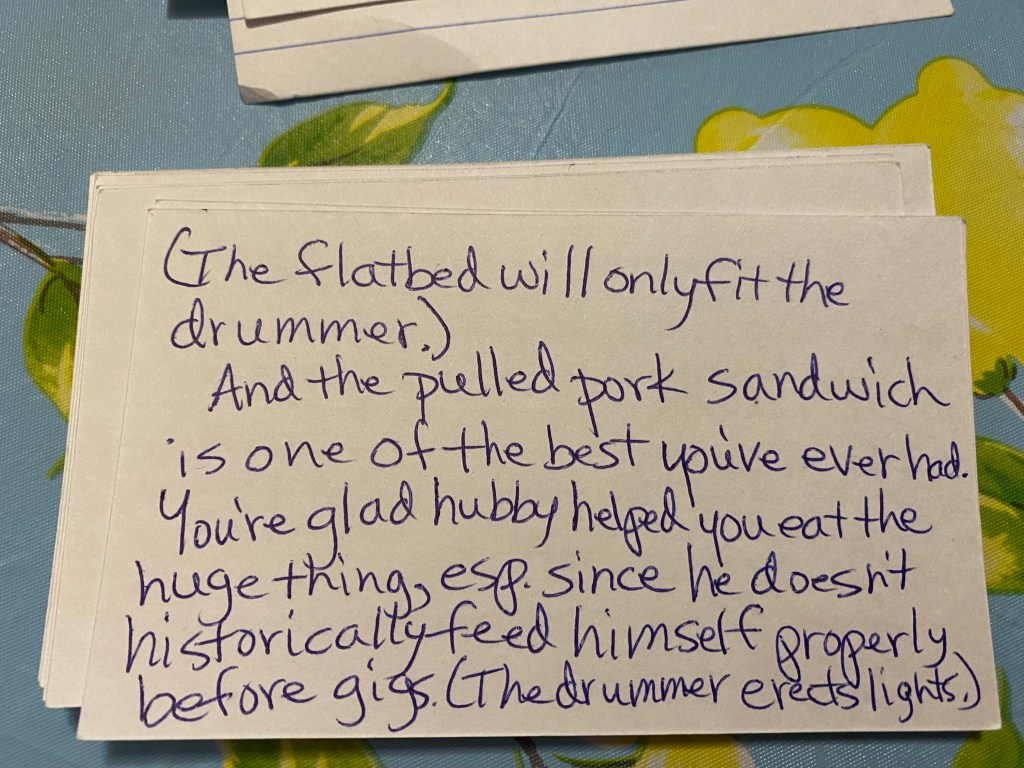 (The flatbed will only fit the
drummer.)
And the pulled pork sandwich
is one of the best you've ever had.
You're glad hubby helped you eat the
huge thing, esp. since he doesn't
historically feed himself properly
before gigs. (The drummer erects lights.)